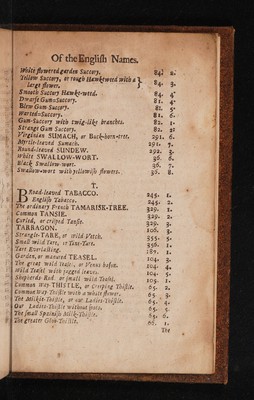 Of the English Names.
White flowered garden Succory. 84. 2.
Yellow Succory, or rough Hawkeweed with a
large flower. 84. 3.
Smooth Succory Hawke-weed. 84. 4
Dwarfe Gum-Succory. 81. 4.
Blew Gum-Succory. 82. 5.
Warted-Succory. 81. 6.
Gum-Succory with twig-like branches. 82. 1.
Strange Gum Succory. 82. 2
Virginian SUMACH, or Buck-horn-tree. 291. 6.
Myrtle-leaved Sumach. 291. 7.
Round-leaved SUNDEW. 292. 3.
White SWALLOW-WORT. 36. 6.
Black Swallow-wort. 36. 7.
Swallow-wort with yellowish flowers. 36. 8.
T.
BRoad-leaved TABACCO. 245. 1.
English Tabacco. 245. 2.
The ordinary French TAMARISE-TREE. 329. 1.
Common TANSIE. 329. 2.
Curled, or crisped Tansie. 329. 3.
TARRAGON. 106. 5.
Strangle-TARE, or wild Vetch. 355. 5.
Small wild Tare, or Tine-Tare. 356. 1.
Tare Everlasting. 182. 1.
Garden, or manured TEASEL. 104. 3.
The great wild Teasel, or Venus bason. 104. 4.
Wild Teasel with jagged leaves. 104. 5.
Shepherds-Rod, or small wild Teasel. 105. 1.
Common Way THISTLE, or Creeping Thistle. 65. 2.
Common Way Thistle with a white flower. 65. 3.
The Milkie-Thistle, or our Ladies-Thistle. 65. 4.
Our Ladies-Thistle without spots. 65. 5.
The small Spanish Milk-Thistle. 65. 6.
The greater Globe-Thistle. 66. 1.
The